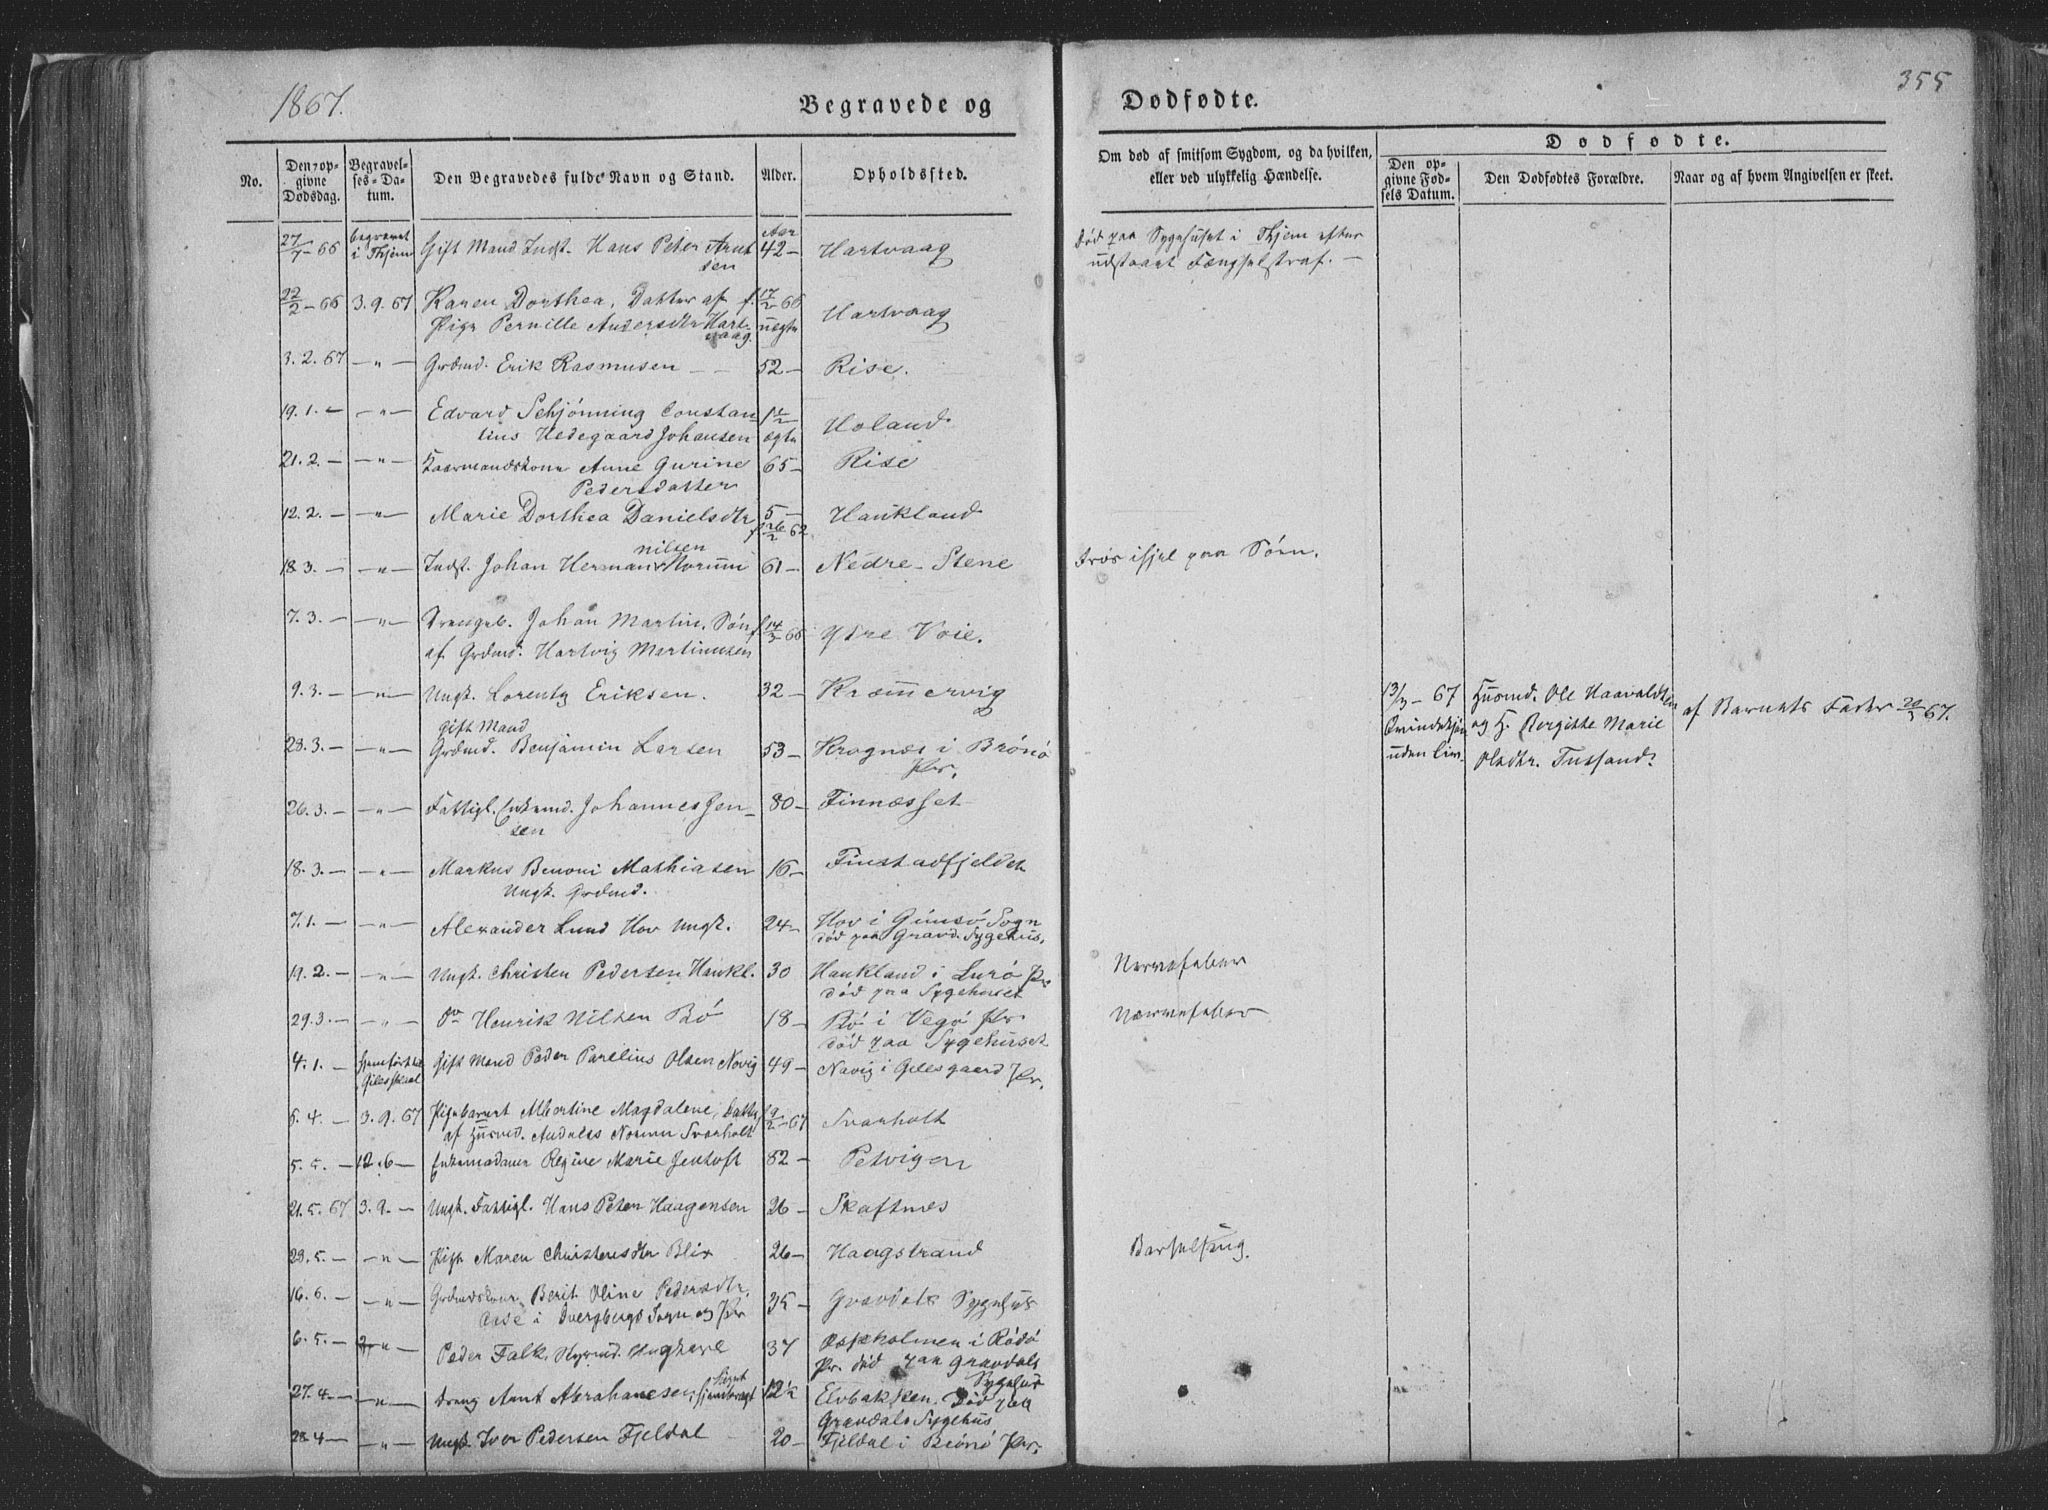 1867.
Begravede og
Dødfødte.
355
No.
Den opgivne Dødsdag.
Begravelses-Datum.
Den Begravedes fulde Navn og Stand.
Alder.
Opholdssted.
Om død af smitsom Sygdom, og da hvilken, eller ved ulykkelig Hændelse.
Dødfødte.
Den opgivne Fødsels Datum.
Den Dødfødtes Forældre.
Naar og af hvem Angivelsen er skeet.
Aar
27/7-66 begravet i Thjem Gift Mand Indst. Hans Peter Arntsen 42 - Hartvaag Død paa Sygehuset i Thjem efter
udstaaet Fængselstraf. -
22/2-66 3.9.67 Karen Dorthea, Datter af f. 17/2 66 Hartvaag
Pige Pernille Andersdtr Hartvaag. uægte
3.2.67 -"- Grdmd. Erik Rasmusen 52 - Rise.
19.1. - -"- Edvard Schjønning Constantius Hedegaard Johansen 1 1/2 ægte Holand.
21.2. - -"- Kaarmandskone Anne Gurine Pedersdatter 65 - Rise
12.2. - -"- Marie Dorthea Danielsdtr 5 - f 26/2 62 Haukland
18.3. - -"- Indst. Johan Herman Nilsen Norum 61 - Nedre-Stene Frøs ihjel paa Søen.
7.3. - -"- Drengeb. Johan Martin, Søn f 14/3 66 Ydre Voie.
af Grdmd. Hartvig Martinusen
9.3. - -"- Ungk. Lorentz Eriksen. 32 - Kræmmervig
13/3-67 Qvindekjøn uden Liv. Husmd. Ole Haavaldsen og H. Bergitte Marie Olsdtr. Tussand. af Barnets Fader 20/3 67.
gift Mand
28.3. - -"- Grdmd. Benjamin Larsen 53 - Krognæs i Brønø Pr.
26.3. - -"- Fattigl. Enkemd. Johannes Jensen 80 - Finnæsset
18.3. - -"- Markus Benoni Mathiasen 16 - Finstadfjeldet
Ungk. Grdmd.
7.1. - -"- Alexander Lund Hov Ungk. 24 - Hov i Gimsø Sogn
død paa Gravd. Sygehus.
19.2. - -"- Ungk. Christen Pedersen Haukl. 30 Haukland i Lurø Pr. Nervefeber
død paa Sygehuset
29.3. - -"- Do Henrik Nilsen Bø 18 - Bø i Vegø Pr. Nervefeber
død paa Sygehuset
4.1. - Hjemført til Gilleskaal Gift Mand Peder Parelius Olsen Novig 49 - Novig i Gilesgaard Pr.
5.4. - 3.9.67 Pigebarnet Albertine Magdalene, Datter f 9/2-67 Svarholt
af Husmd. Andreas Normn Svarholt
5.5. - 12.6 - Enkemadame Regine Marie Jentoft 82 - Petvigen
21.5.67 3.9. - Ungk. Fattigl. Hans Peter Haagensen 26 - Skaftnes
28.5. - -"- Pige Maren Christensdtr Blix 26 - Haagstrand Barselseng.
16.6. - -"- Grdmdskone Berit Oline Pedersdtr. 35 - Gravdals Sygehus
i Dverbergs Sogn og Pr
6.5. - -"- Peder Falk, Ungkarl 37 Oskholmen i Rødø
Pr. død paa Gravdals Sygehus
27.4. - -"- Dreng Arnt Abrahamsen, 12 1/2 Elvbakken. Død paa
Gravdals Sygehus
28.4 - -"- Ungk. Iver Pedersen Fjeldal 20 - Fjeldal i Brønø Pr.